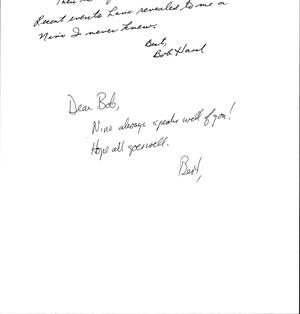 Recent events have revealed to me a
Nino I never knew.
Best,
Bob
Dear Bob,
Nino always speaks well of you!
Hope all goes well.
Best,